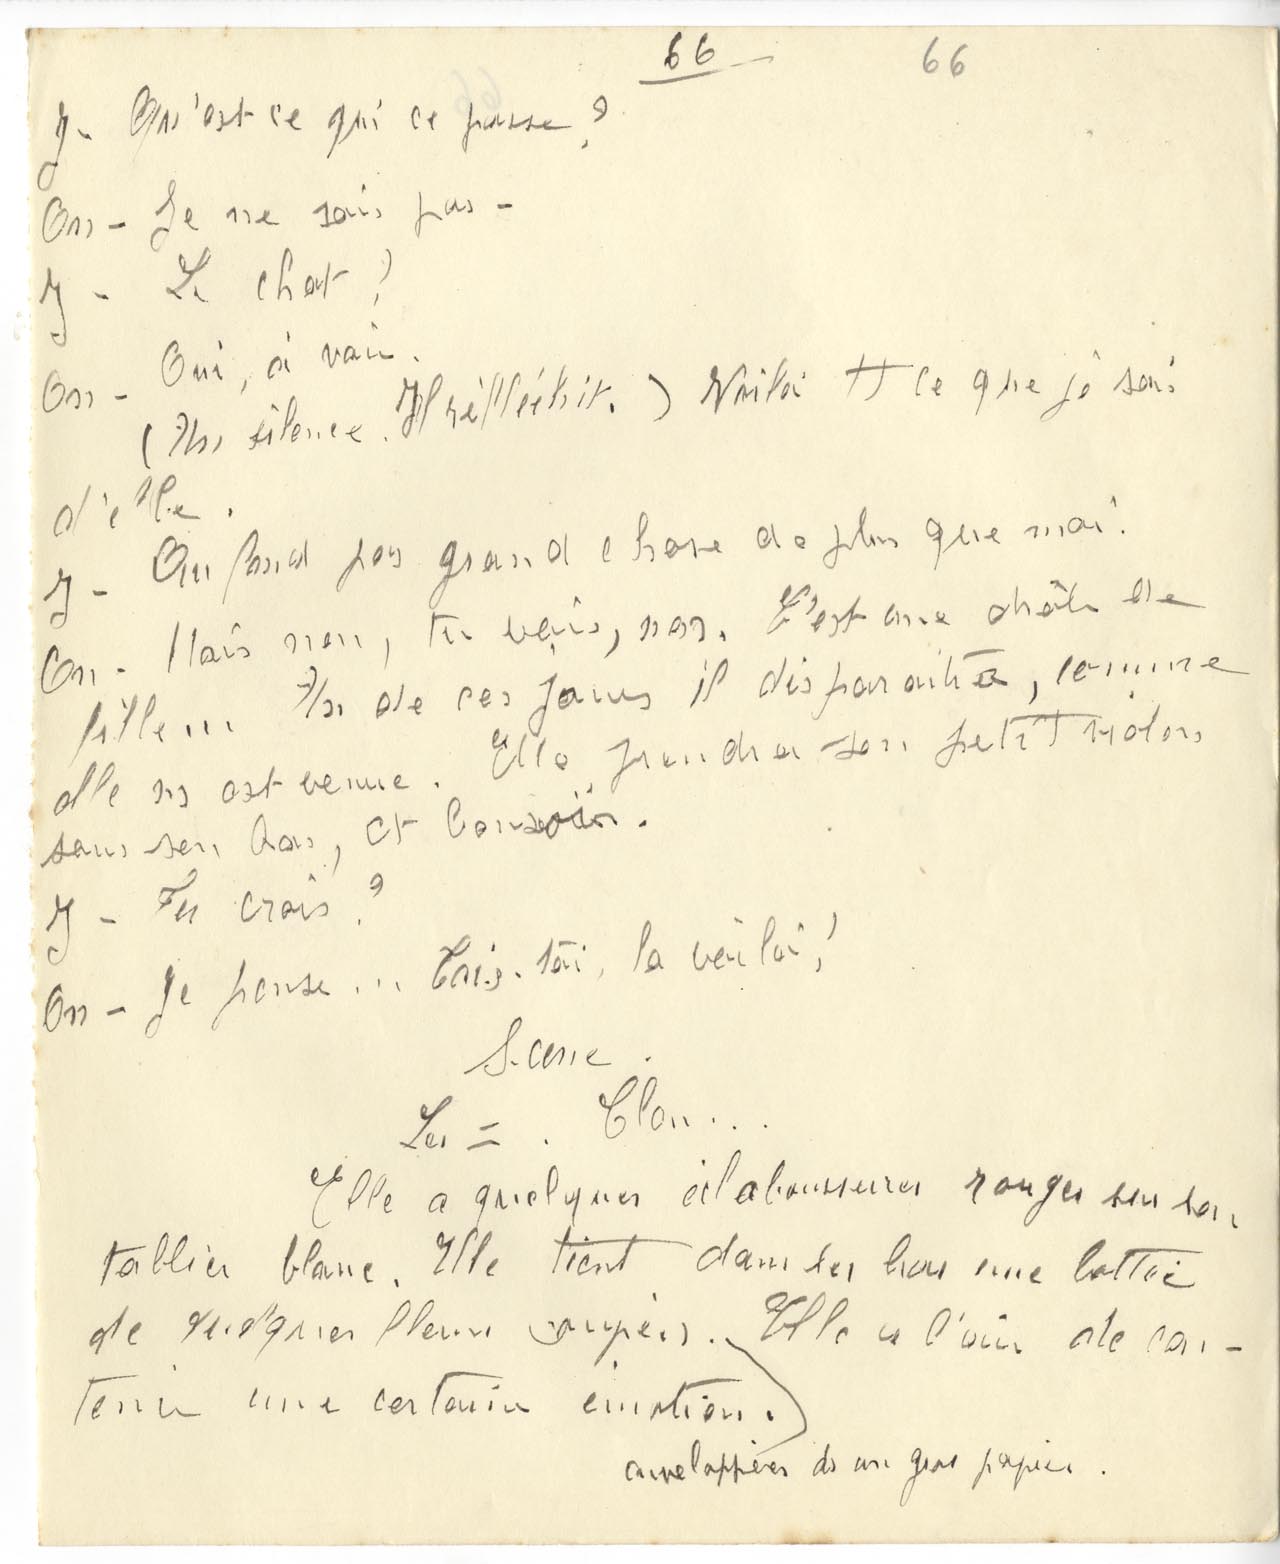 66 66
J - Qu'est ce qui ce passe ?
On - Je ne sais pas -
J - Le chat ?
On - Oui, à voir.
( Un silence. Il réfléchit. ) Voilà tt ce que je sais
d'elle.
J - Au fond pas grand chose de plus que moi.
On - Mais non, tu vois, non. C'est une drôle de
fille... Un de ces jours il disparaitra, comme
elle ns est venue. Elle prendra son petit violon
sous son bras, et bonsoir.
J - Tu crois ?
On - Je pense ... Tais-toi, la voilà !
Scene .
Les = . Clou . . .
Elle a quelques éclaboussures rouges sur son
tablier blanc. Elle tient dans ses bras une botte
de fleurs coupées. Elle a l'air de con-
tenir une certaine émotion.
enveloppées ds un gros papier .